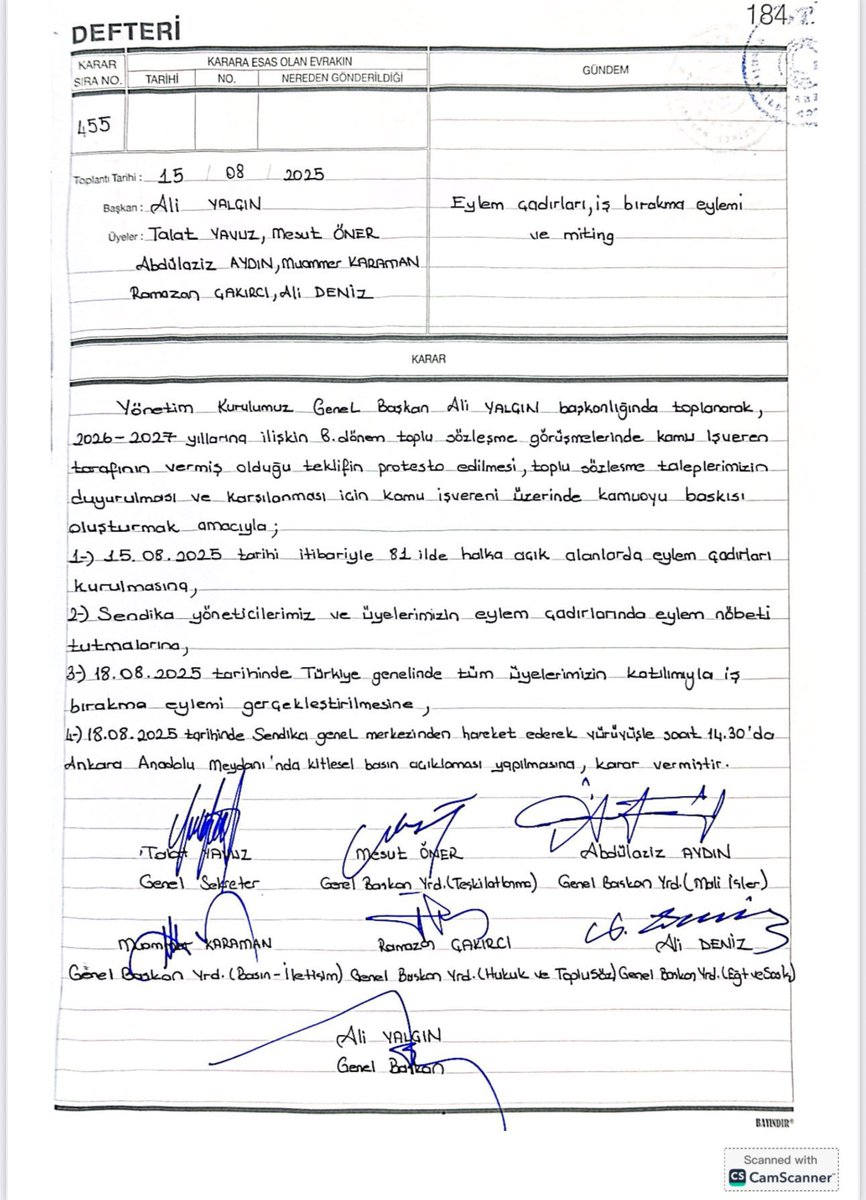 184
DEFTERİ
KARAR SIRA NO.
KARARA ESAS OLAN EVRAKIN
TARİHİ NO. NEREDEN GÖNDERİLDİĞİ
GÜNDEM
455
Toplantı Tarihi : 15 / 08 / 2025
Başkan : Ali YALÇIN
Üyeler : Talat YAVUZ, Mesut ÖNER
Abdülaziz AYDIN, Muammer KARAMAN
Ramazan ÇAKIRCI, Ali DENİZ
Eylem çadırları, iş bırakma eylemi
ve miting
KARAR
Yönetim Kurulumuz Genel Başkan Ali YALÇIN başkanlığında toplanarak,
2026-2027 yıllarına ilişkin 8. dönem toplu sözleşme görüşmelerinde kamu işveren
tarafının vermiş olduğu teklifin protesto edilmesi, toplu sözleşme taleplerimizin
duyurulması ve karşılanması için kamu işvereni üzerinde kamuoyu baskısı
oluşturmak amacıyla;
1-) 15.08.2025 tarihi itibariyle 81 ilde halka açık alanlarda eylem çadırları
kurulmasına,
2-) Sendika yöneticilerimiz ve üyelerimizin eylem çadırlarında eylem nöbeti
tutmalarına,
3-) 18.08.2025 tarihinde Türkiye genelinde tüm üyelerimizin katılımıyla iş
bırakma eylemi gerçekleştirilmesine,
4-) 18.08.2025 tarihinde Sendika genel merkezinden hareket ederek yürüyüşle saat 14.30'da
Ankara Anadolu Meydanı'nda kitlesel basın açıklaması yapılmasına, karar vermiştir.
Talat YAVUZ Mesut ÖNER Abdülaziz AYDIN
Genel Sekreter Genel Başkan Yrd.(Teşkilatlanma) Genel Başkan Yrd.(Mali İşler)
Muammer KARAMAN Ramazan ÇAKIRCI Ali DENİZ
Genel Başkan Yrd.(Basın-İletişim) Genel Başkan Yrd.(Hukuk ve Toplusöz) Genel Başkan Yrd.(Eğt ve Sosk)
Ali YALÇIN
Genel Başkan
BAYINDIR®
Scanned with
CS CamScanner